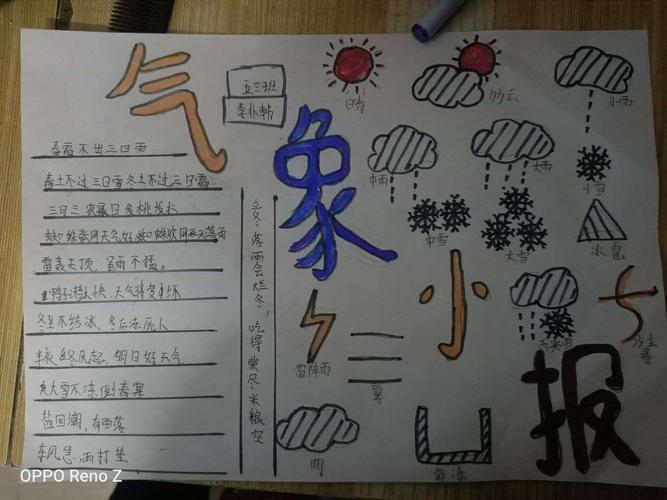 气象小报
五三班
李非韩
春雾不出三日雨
春土不过三日雪冬土不过三日霜
三日三
蜘蛛张网天气好,蜘蛛收网天落雨
雷轰天顶,虽雨不猛。
鸭子潜水快,天气将变坏
冬至不结冰,冬后冻死人
半夜冬风起,明日好天气
大雪不冻倒春寒
盐回潮,有雨落
东风急,雨打垫
冬落雨会烂冬,吃得柴尽米粮空
晴
多云
小雨
中雨
大雨
小雪
中雪
大雪
冰雹
雨夹雪
沙尘暴
雷阵雨
雾
阴
霜冻
OPPO Reno Z